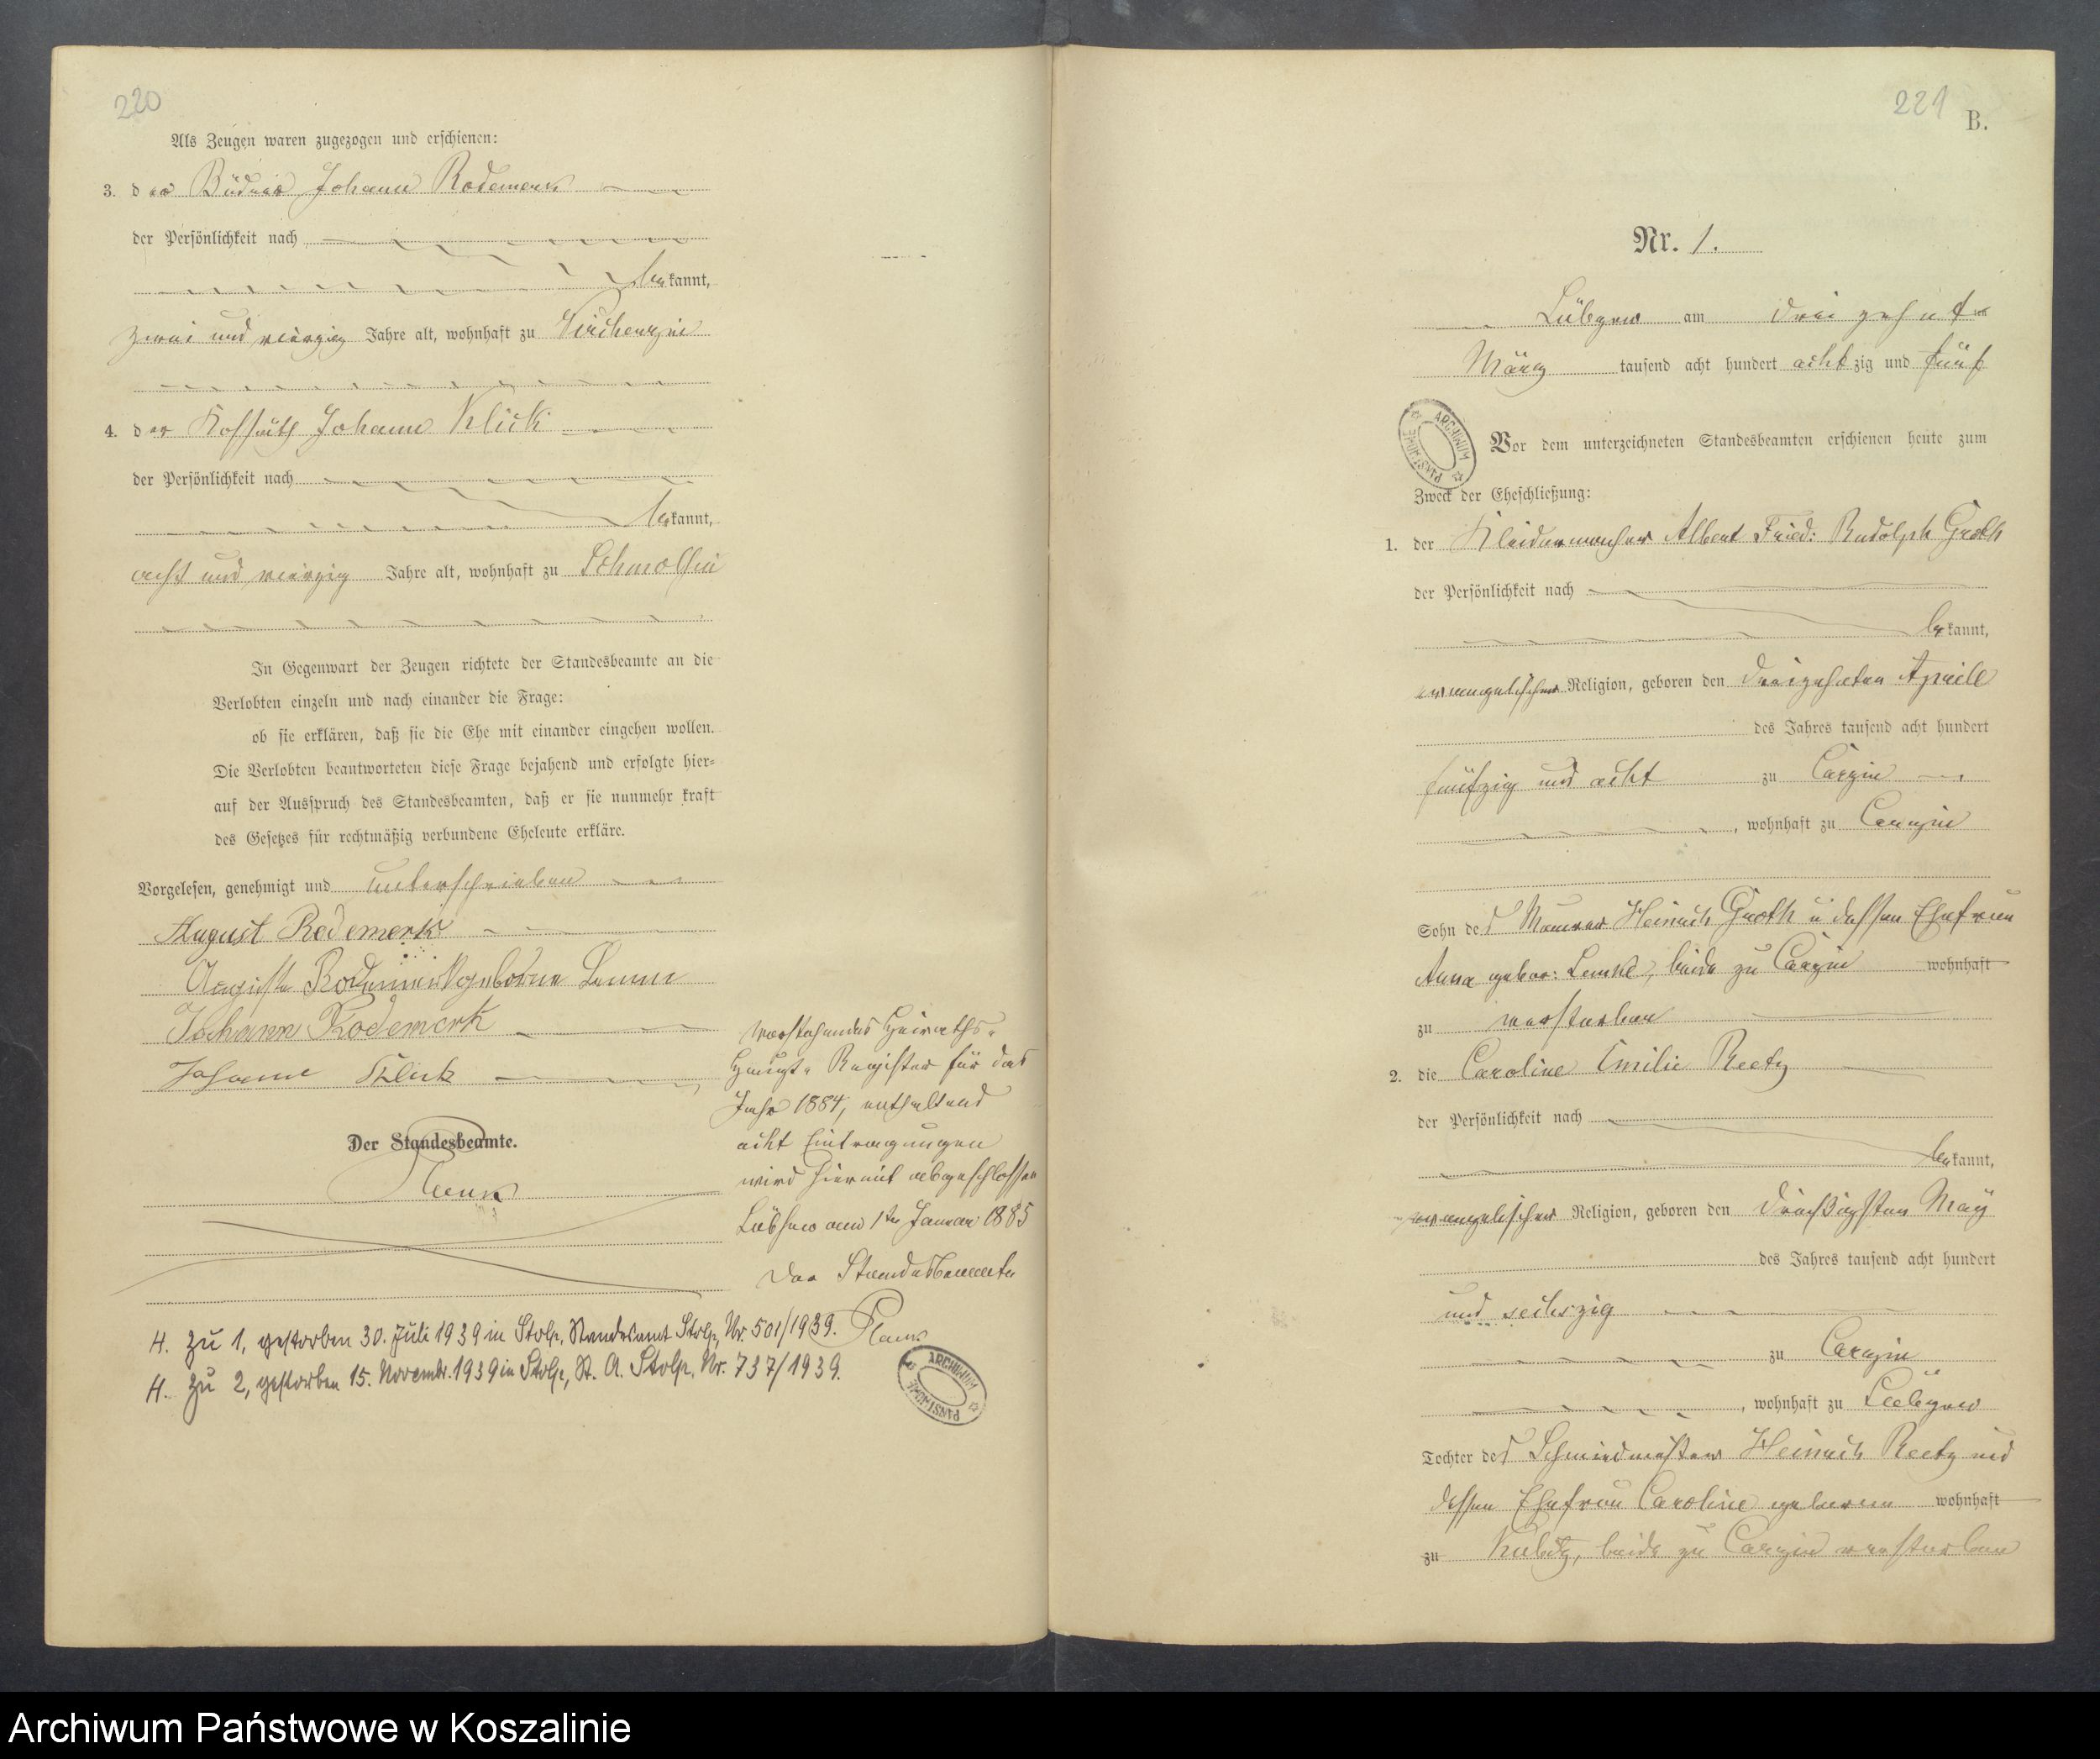 220
Als Zeugen waren zugezogen und erschienen:
3. der Büdner Johann Rodemerk
der Persönlichkeit nach
bekannt,
zwei und vierzig Jahre alt, wohnhaft zu
4. der Kossäth Johann Klick
der Persönlichkeit nach
bekannt,
acht und vierzig Jahre alt, wohnhaft zu Schmolsin
In Gegenwart der Zeugen richtete der Standesbeamte an die
Verlobten einzeln und nach einander die Frage:
ob sie erklären, daß sie die Ehe mit einander eingehen wollen.
Die Verlobten beantworteten diese Frage bejahend und erfolgte hier-
auf der Ausspruch des Standesbeamten, daß er sie nunmehr kraft
des Gesetzes für rechtmäßig verbundene Eheleute erkläre.
Vorgelesen, genehmigt und unterschrieben
August Rodemerk
Auguste Rodemerk geborne
Johann Rodemerk
Johann Klick
Der Standesbeamte.
Vorstehendes Heiraths-
Haupt-Register für das
Jahr 1884, enthaltend
acht Eintragungen
wird hiermit abgeschlossen
Lübzow am 1ten Januar 1885
Der Standesbeamte
H. Zu 1, gestorben 30. Juli 1939 in Stolp, Standesamt Stolp, Nr. 501/1939.
H. Zu 2, gestorben 15. Novembr. 1939 in Stolp, St. A. Stolp, Nr. 737/1939.
ARCHIWUM PAŃSTWOWE
221
B.
Nr. 1.
Lübzow am dreizehnten
März tausend acht hundert achtzig und fünf
ARCHIWUM PAŃSTWOWE
Vor dem unterzeichneten Standesbeamten erschienen heute zum
Zweck der Eheschließung:
1. der Kleidermacher Albert Fried: Rudolph Groth
der Persönlichkeit nach
bekannt,
evangelischer Religion, geboren den dreizehnten Aprill
des Jahres tausend acht hundert
fünfzig und acht zu Carzin
, wohnhaft zu Carzin
Sohn des Maurer Heinrich Groth u dessen Ehefrau
Anna gebor: Lemke, beide zu Carzin wohnhaft
zu verstorben
2. die Caroline Emilie Reetz
der Persönlichkeit nach
bekannt,
evangelischer Religion, geboren den dreißigsten May
des Jahres tausend acht hundert
und sechszig
zu Carzin
, wohnhaft zu Luebzow
Tochter des Schmiedmeisters Heinrich Reetz und
dessen Ehefrau Caroline geborene wohnhaft
zu Kubitz, beide zu Carzin verstorben
Archiwum Państwowe w Koszalinie